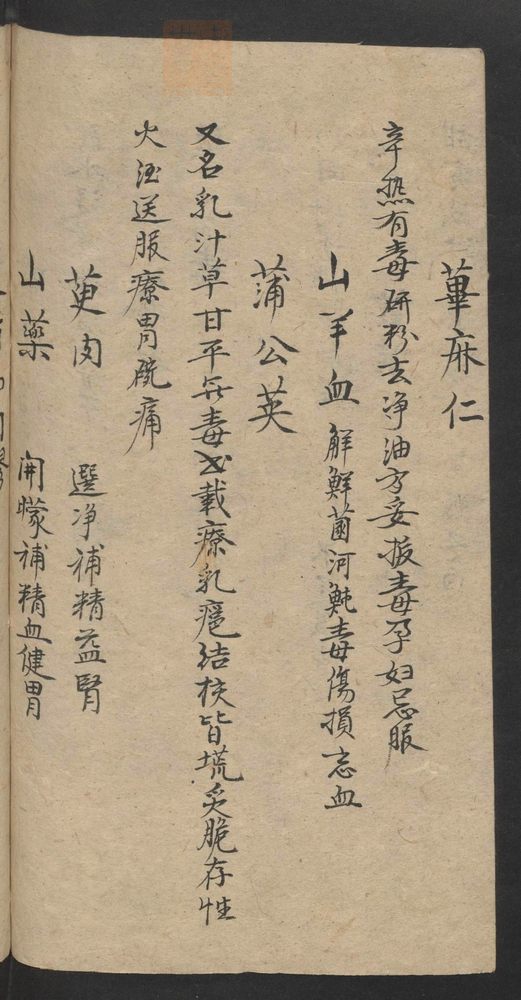 蓽麻仁
辛热有毒研粉去净油方妥拔毒孕妇忌服
山羊血 解鮮菌河魨毒傷損惡血
蒲公英
又名乳汁草甘平無毒 載療乳癰结核皆 炙脆存性
火酒送服療胃脘痛
萸肉 選净補精益腎
山藥 開矇補精血健胃